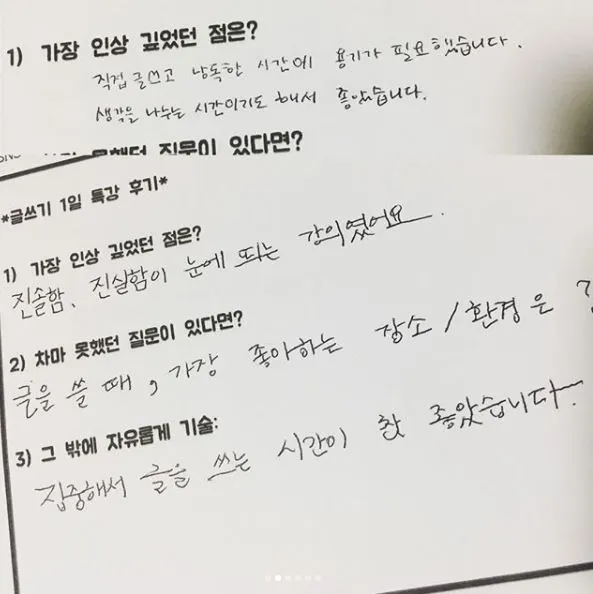 1) 가장 인상 깊었던 점은?
직접 글쓰고 낭독한 시간에 용기가 필요했습니다.
생각을 나누는 시간이기도 해서 좋았습니다.
못했던 질문이 있다면?
*글쓰기 1일 특강 후기*
1) 가장 인상 깊었던 점은?
진솔함, 진실함이 눈에 띄는 강의였어요.
2) 차마 못했던 질문이 있다면?
글을 쓸 때, 가장 좋아하는 장소/환경은
3) 그 밖에 자유롭게 기술:
집중해서 글을 쓰는 시간이 참 좋았습니다~